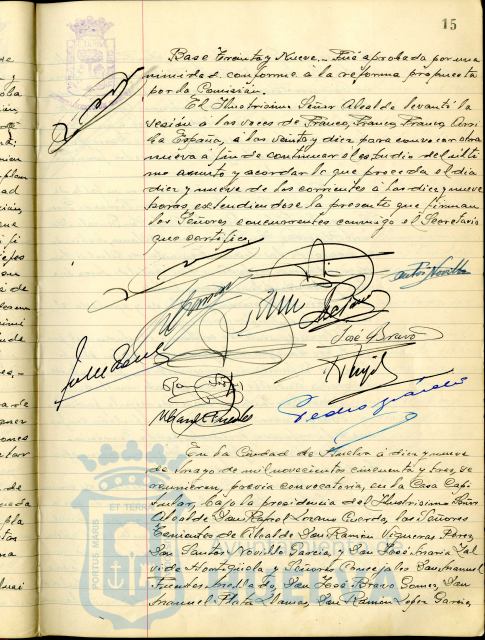 15
Base Treinta y Nueve.- Fué aprobada por una
nimidad conforme a la reforma propuesta
por la Comisión.
El Ilustrísimo Señor Alcalde levantó la
sesión a las voces de Franco, Franco, Franco, Arri
ba España, a las veinte y diez para convocar otra
nueva a fin de continuar el estudio del últi
mo asunto y acordar lo que proceda el día
diez y nueve de los corrientes a las diez y nueve
horas, extendiéndose la presente que firman
los Señores concurrentes conmigo el Secretario
que certifico.
José Bravo
En la Ciudad de Huelva a diez y nueve
de mayo de mil novecientos cincuenta y tres, se
reunieron, previa convocatoria, en la Casa Capi
tular, bajo la presidencia del Ilustrísimo Señor
Alcalde Don Rafael Lozano Cuerda, los Señores
Tenientes de Alcalde Don Ramón Vigueras Pérez,
Don Santos Novillo García, y Don José María Jal
vi de Hontiguela y Señores Concejales Don Manuel
Fuentes Don José Bravo Gomez, Don
Manuel Plata Llamas, Don Ramón López García,
PORTUS MARIS
ET TERRAE